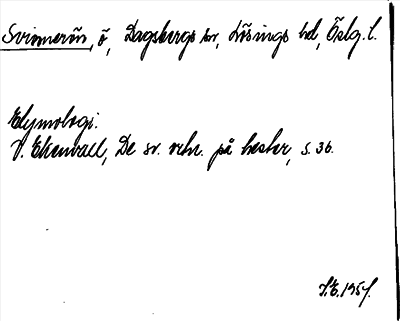 Svinnerön, ö, Dagsbergs sn, Lösings hd, Östg. l.
Etymologi.
V. Ekenvall, De sv. ortn. på hester, s. 36.
S.E. 1957.